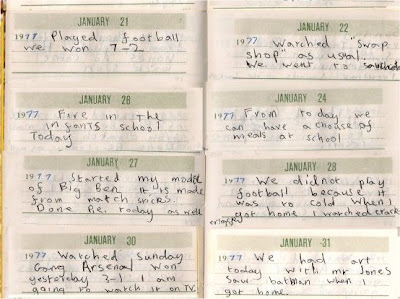 JANUARY 21
1977 Played football
we won 7-2
JANUARY 22
1977 Warched "Swap
shop" as usual
We went to
JANUARY 26
1977 Fire in the
infants school
Today
JANUARY 24
1977 From today we
can have a choose of
meals at school
JANUARY 27
1977 Started my model
of Big Ben it is made
from match sticks.
Done P.e. today as well
JANUARY 28
1977 We did not play
football because it
was to cold when I
got home I watched
JANUARY 30
1977 Watched Sunday
Gang Arsenal won
yesterday 3-1 I am
going to watch it on TV.
JANUARY 31
1977 We had art
today with mr Jones
Saw batman when I
got home.